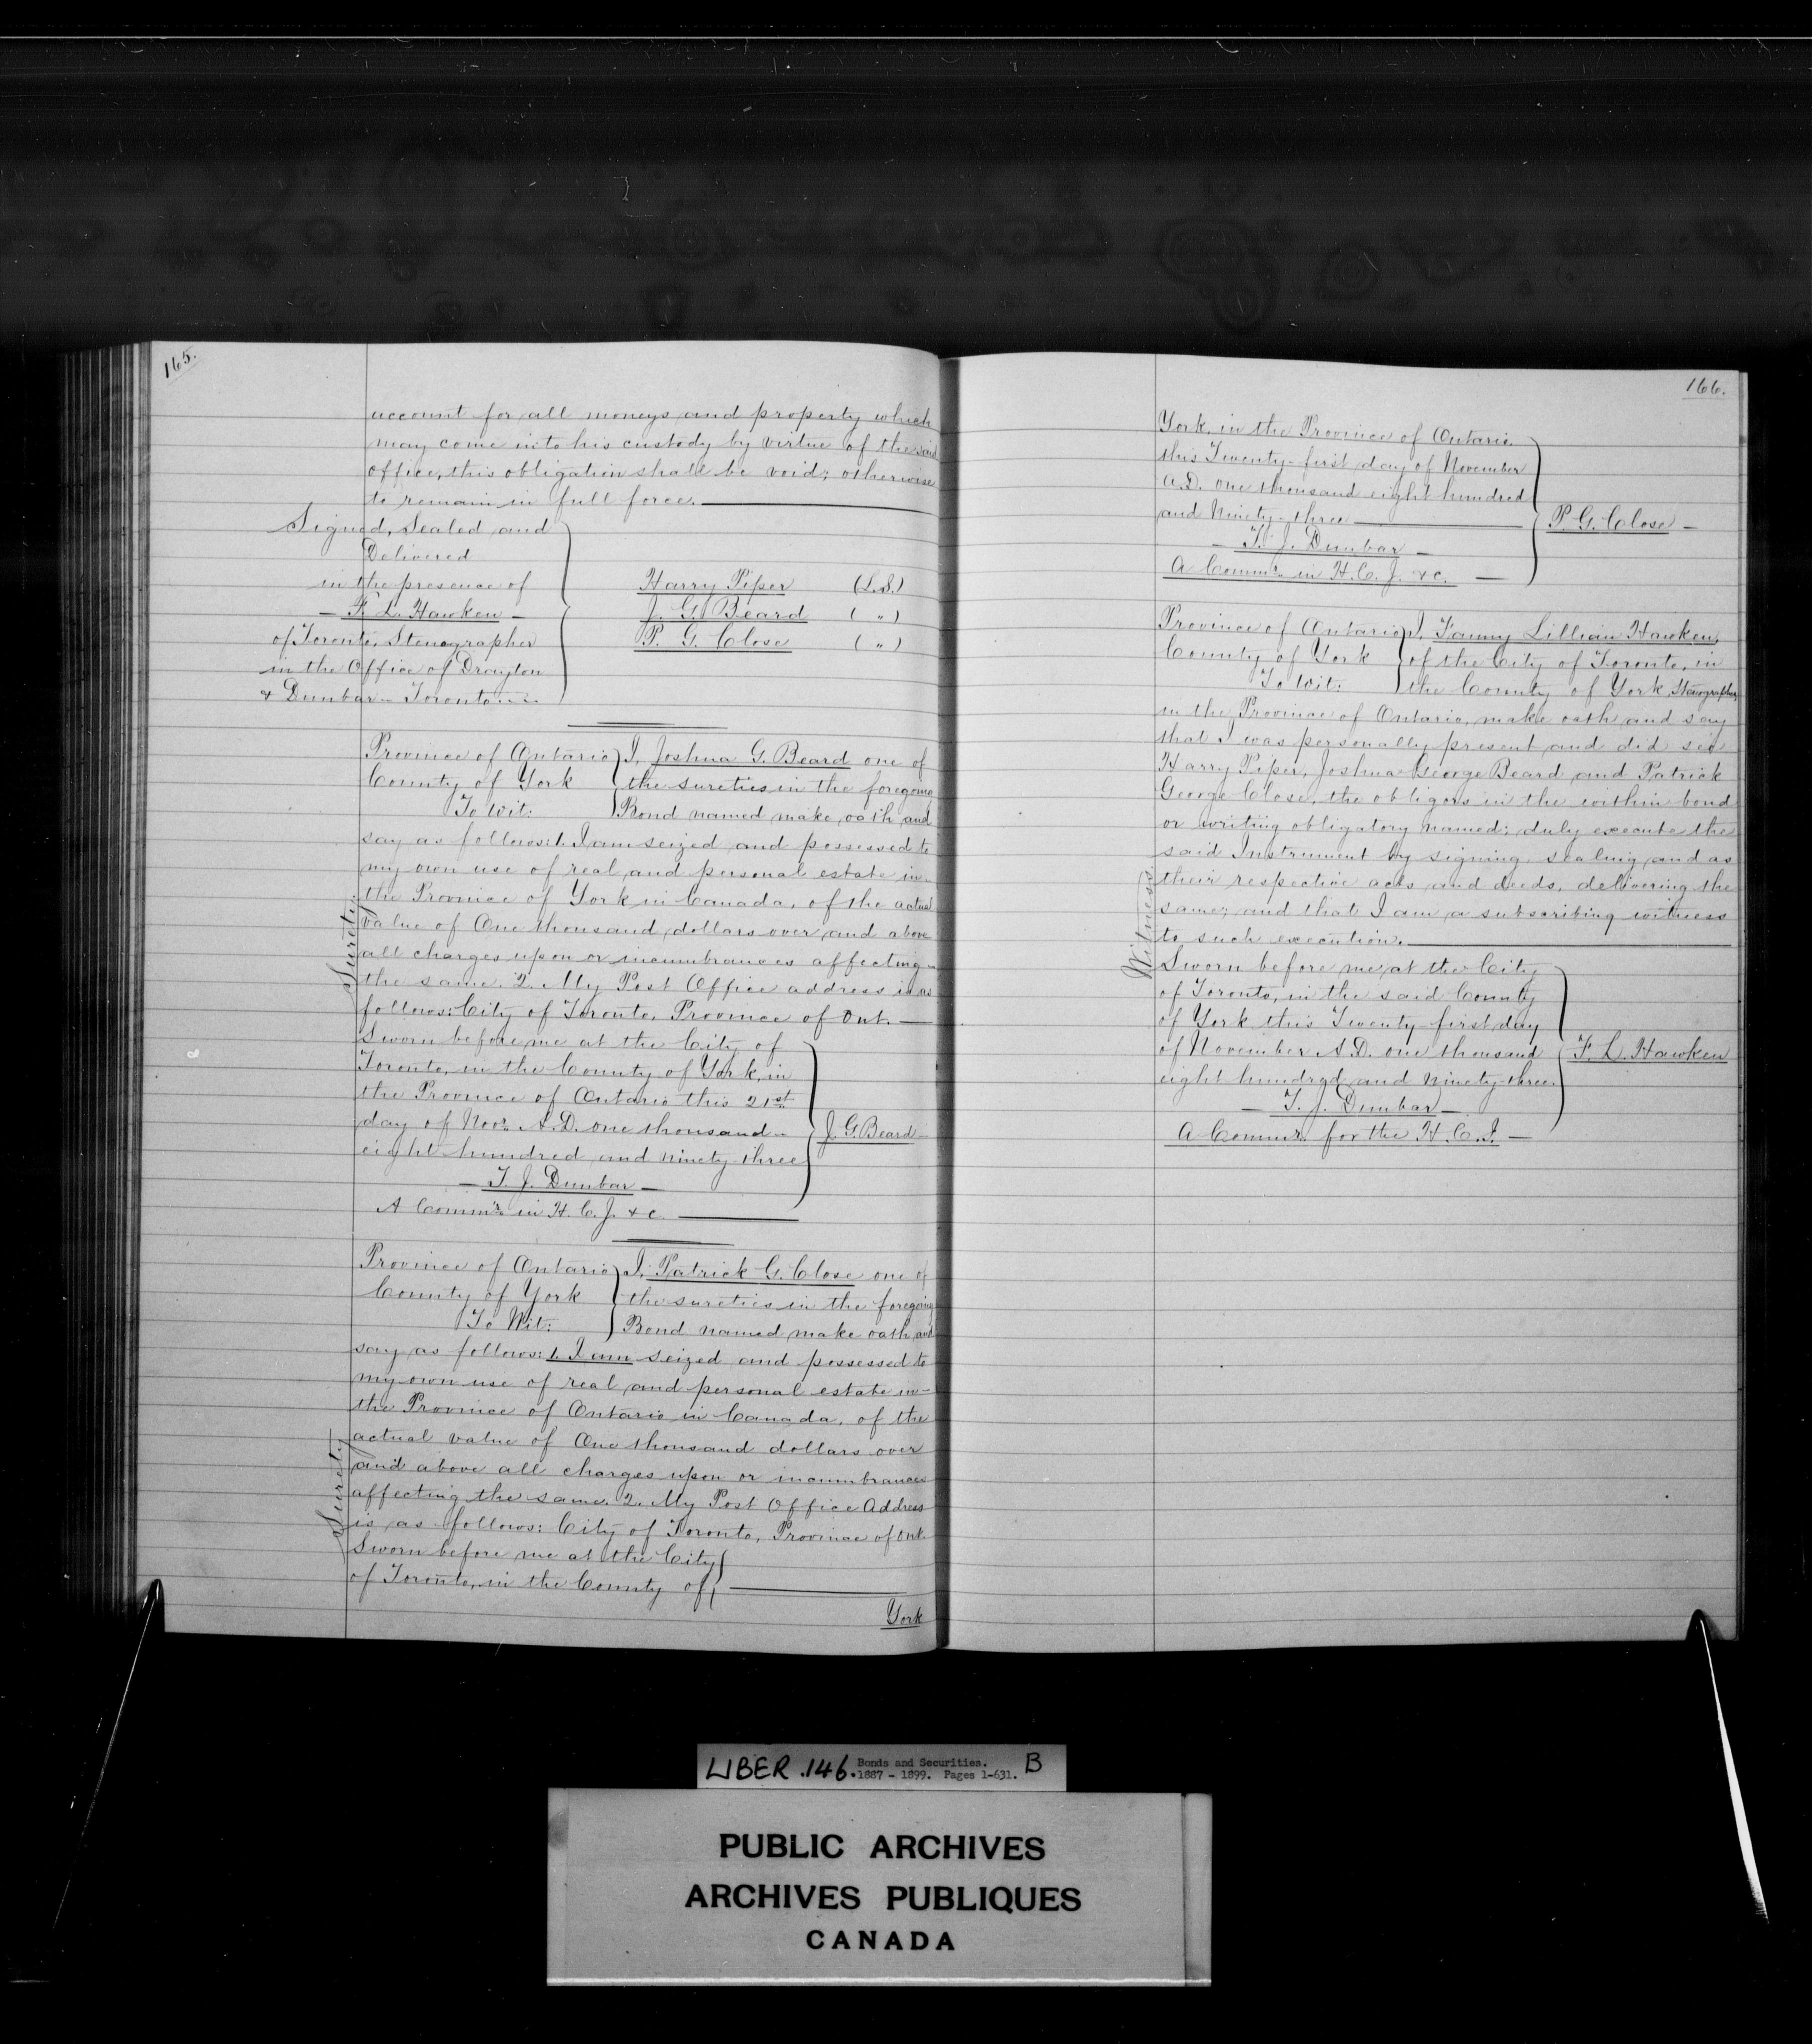 165.
account for all moneys and property which
may come into his custody by virtue of the said
office, this obligation shall be void; otherwise
to remain in full force.
Signed, Sealed and
Delivered
in the presence of
— F. L. Hawken —
of Toronto, Stenographer
in the Office of Drayton
& Dunbar – Toronto
Harry Piper (L.S.)
J. G. Beard ( " )
P. G. Close ( " )
Province of Ontario } I, Joshua G. Beard one of
County of York } the sureties in the foregoing
To Wit: } Bond named make oath and
say as follows: 1. I am seized and possessed to
my own use of real and personal estate in
the Province of York in Canada, of the actual
value of One thousand dollars over and above
all charges upon or incumbrances affecting
the same. 2. My Post Office address is as
follows: City of Toronto, Province of Ont. —
Surety
Sworn before me at the City of
Toronto, in the County of York, in
the Province of Ontario this 21st
day of Novr. A.D. one thousand
eight hundred and ninety three
— T. J. Dunbar —
A Commr. in H. C. J. &c.
J. G. Beard
Province of Ontario } I, Patrick G. Close one of
County of York } the sureties in the foregoing
To Wit: } Bond named make oath and
say as follows: 1. I am seized and possessed to
my own use of real and personal estate in
the Province of Ontario in Canada, of the
actual value of One thousand dollars over
and above all charges upon or incumbrances
affecting the same. 2. My Post Office Address
is as follows: City of Toronto, Province of Ont.
Surety
Sworn before me at the City
of Toronto, in the County of
York
166.
York, in the Province of Ontario
this Twenty-first day of November
A.D. one thousand eight hundred
and Ninety-three
— T. J. Dunbar —
A Commr. in H. C. J. &c. —
P. G. Close —
Province of Ontario } I, Fanny Lillian Hawken,
County of York } of the City of Toronto, in
To Wit: } the County of York, Stenographer
in the Province of Ontario, make oath and say
that I was personally present and did see
Harry Piper, Joshua George Beard and Patrick
George Close, the obligors in the within bond
or writing obligatory named; duly execute the
said Instrument by signing, sealing, and as
their respective acts and deeds, delivering the
same; and that I am a subscribing witness
to such execution.
Witness
Sworn before me, at the City
of Toronto, in the said County
of York this Twenty first day
of November A.D. one thousand
eight hundred and ninety-three.
— T. J. Dunbar —
A Commr. for the H. C. J. —
F. L. Hawken
LIBER .146. Bonds and Securities. B
1887 - 1899. Pages 1-631.
PUBLIC ARCHIVES
ARCHIVES PUBLIQUES
CANADA